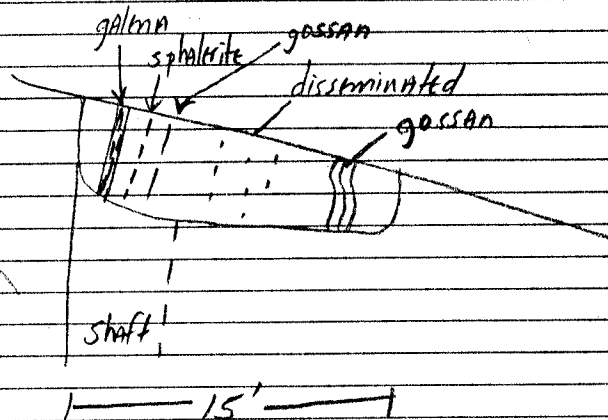 gAlenA
sphalerite
gossan
disseminated
gossan
shaft
15'